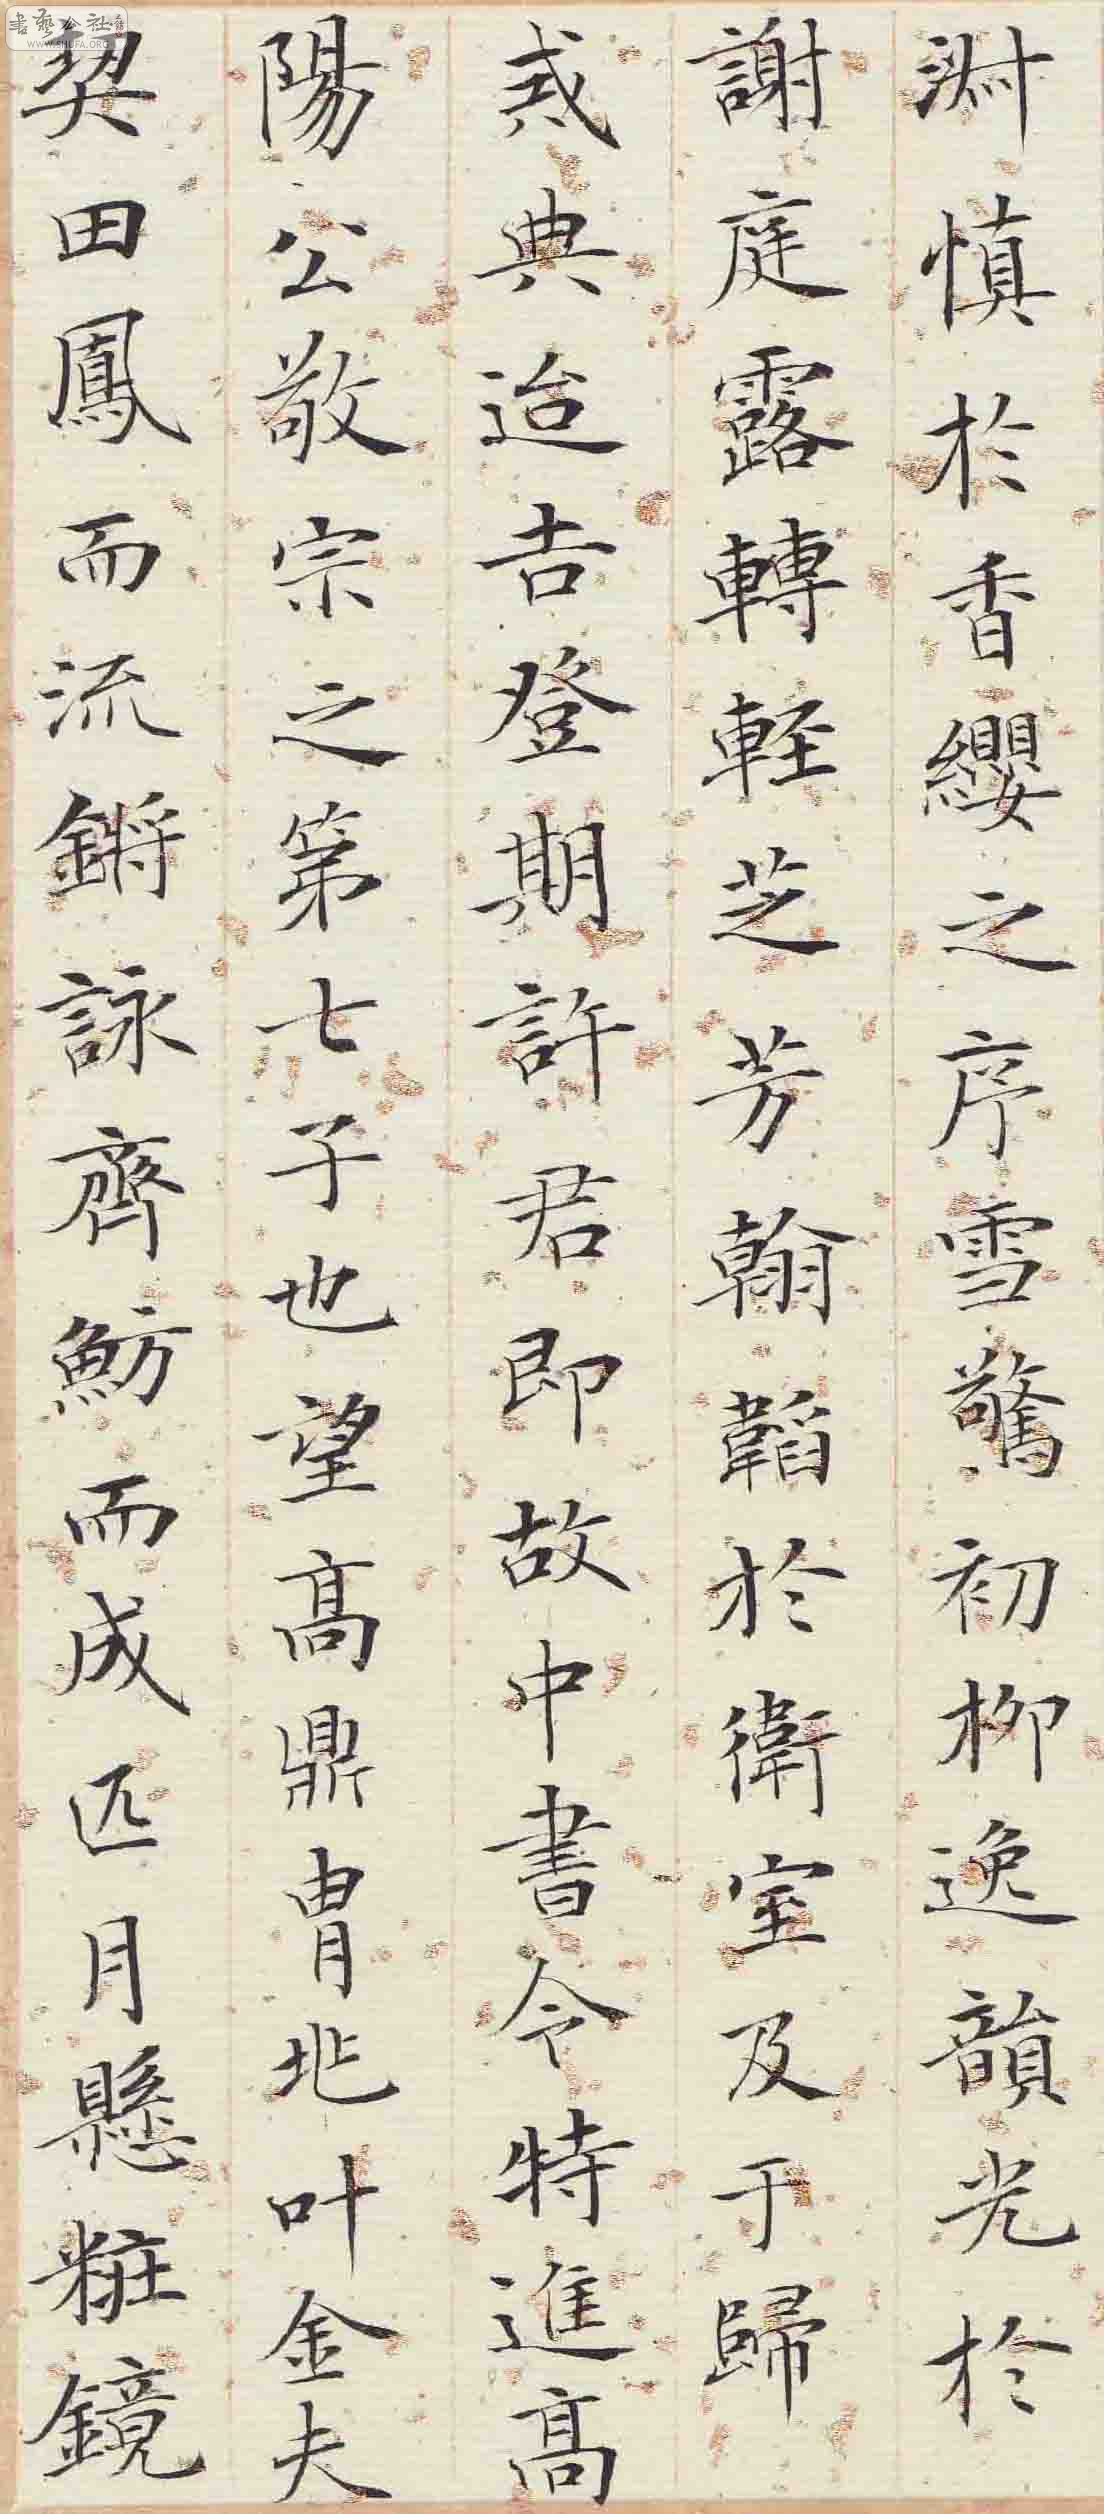 淵慎於香纓之序雪驚初柳逸韻光於
謝庭露轉輊芝芳翰韜於衛室及于歸
戒典迨吉登期許君即故中書令特進高
陽公敬宗之第七子也望高鼎胄兆叶金夫
契田鳳而流鏘詠齊魴而成匹月懸粧鏡
書藝公社
WWW.SHUFA.ORG